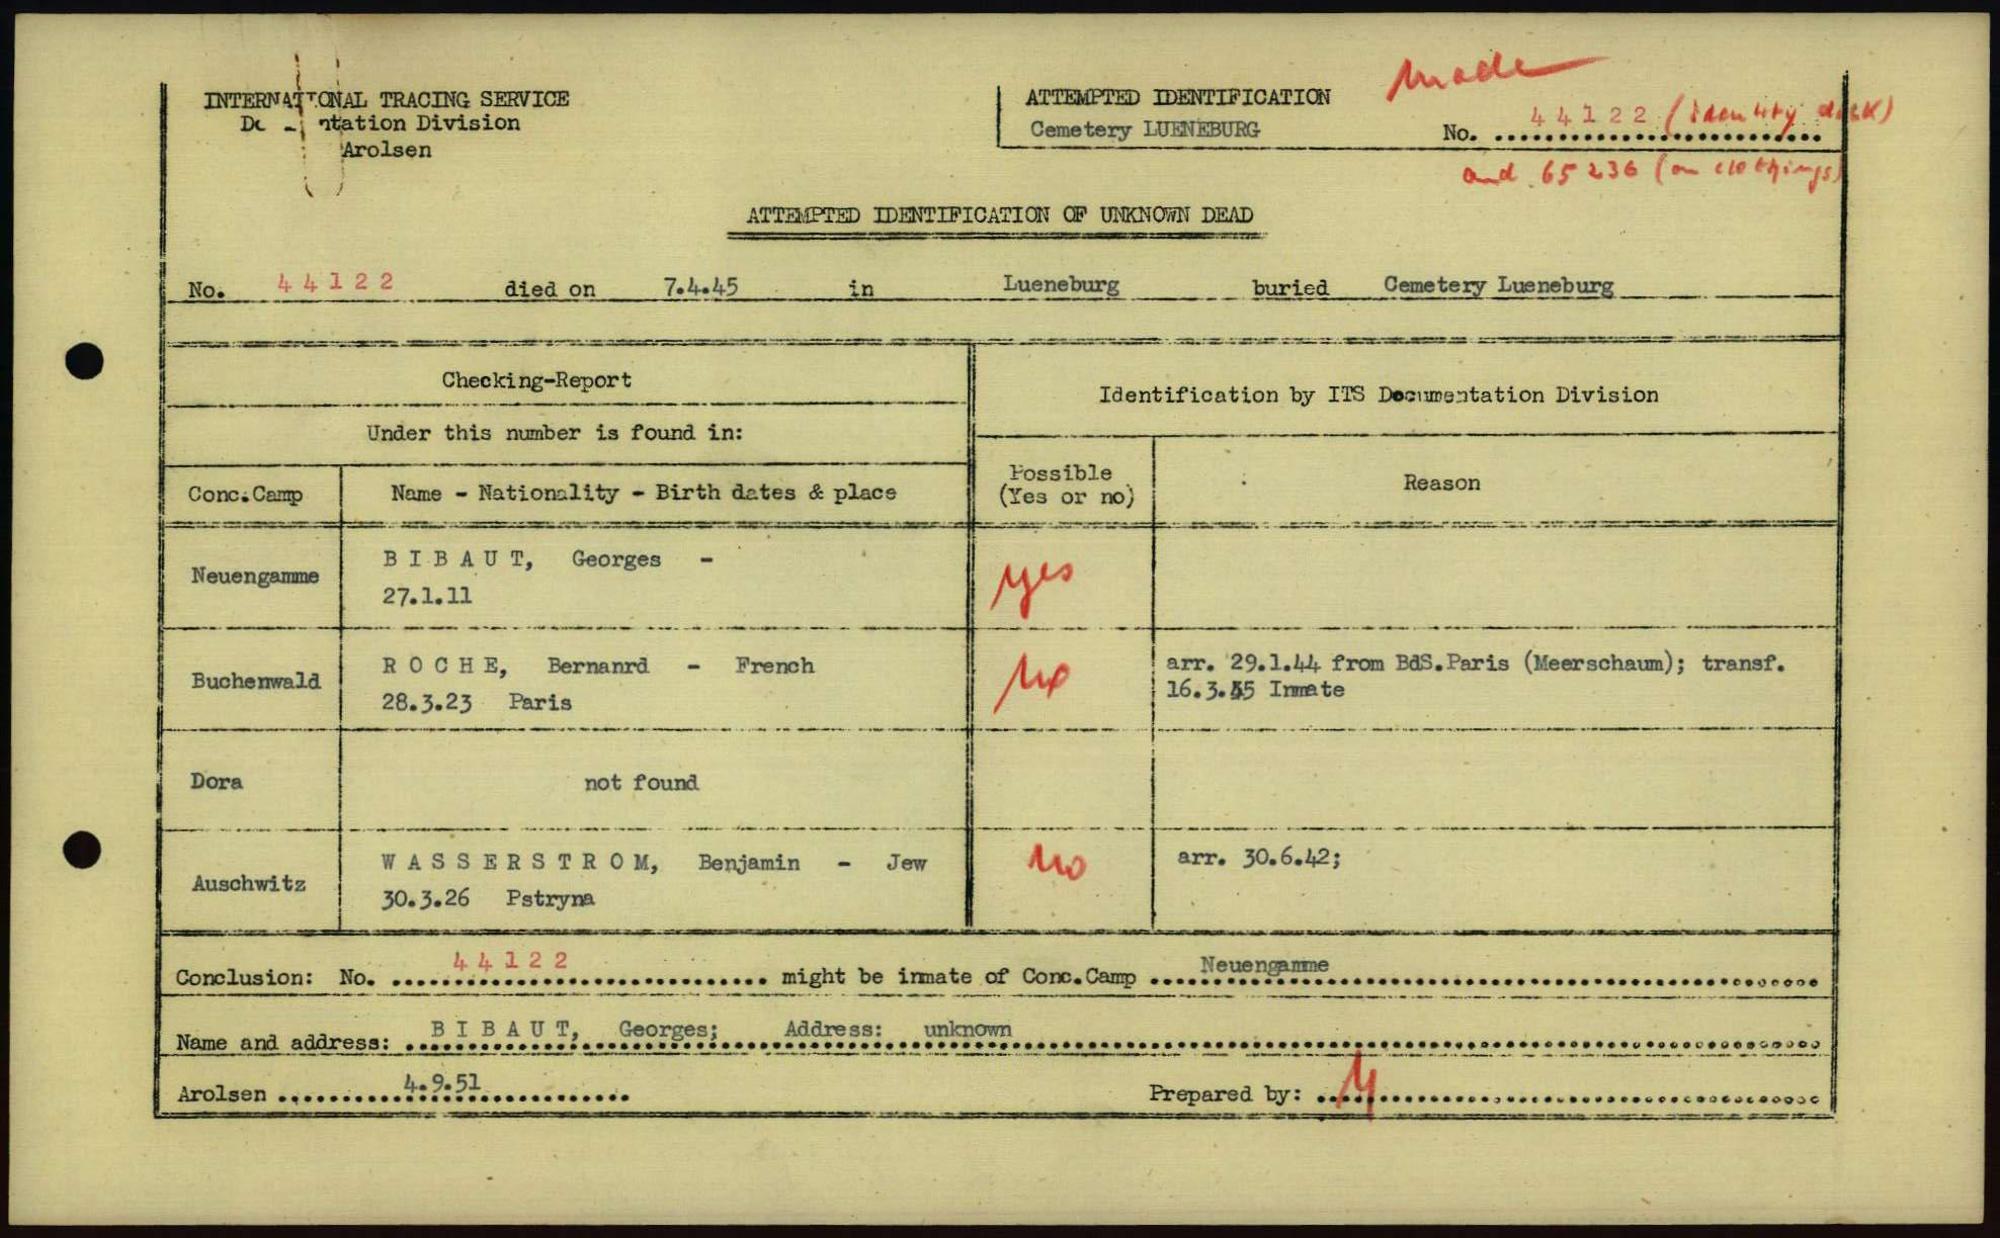 INTERNATIONAL TRACING SERVICE
ntation Division
Arolsen
ATTEMPTED IDENTIFICATION
Cemetery LUENEBURG
made
No. 44122 (identity disk)
and 65236 (on clothings)
ATTEMPTED IDENTIFICATION OF UNKNOWN DEAD
No. 44122 died on 7.4.45 in Lueneburg buried Cemetery Lueneburg
Checking-Report
Identification by ITS Documentation Division
Under this number is found in:
Conc.Camp
Name - Nationality - Birth dates & place
Possible
(Yes or no)
Reason
Neuengamme
B I B A U T, Georges -
27.1.11
yes
Buchenwald
R O C H E, Bernanrd - French
28.3.23 Paris
no
arr. 29.1.44 from BdS.Paris (Meerschaum); transf.
16.3.45 Inmate
Dora
not found
Auschwitz
W A S S E R S T R O M, Benjamin - Jew
30.3.26 Pstryna
no
arr. 30.6.42;
Conclusion: No. 44122 might be inmate of Conc.Camp Neuengamme
Name and address: B I B A U T, Georges; Address: unknown
Arolsen 4.9.51
Prepared by: